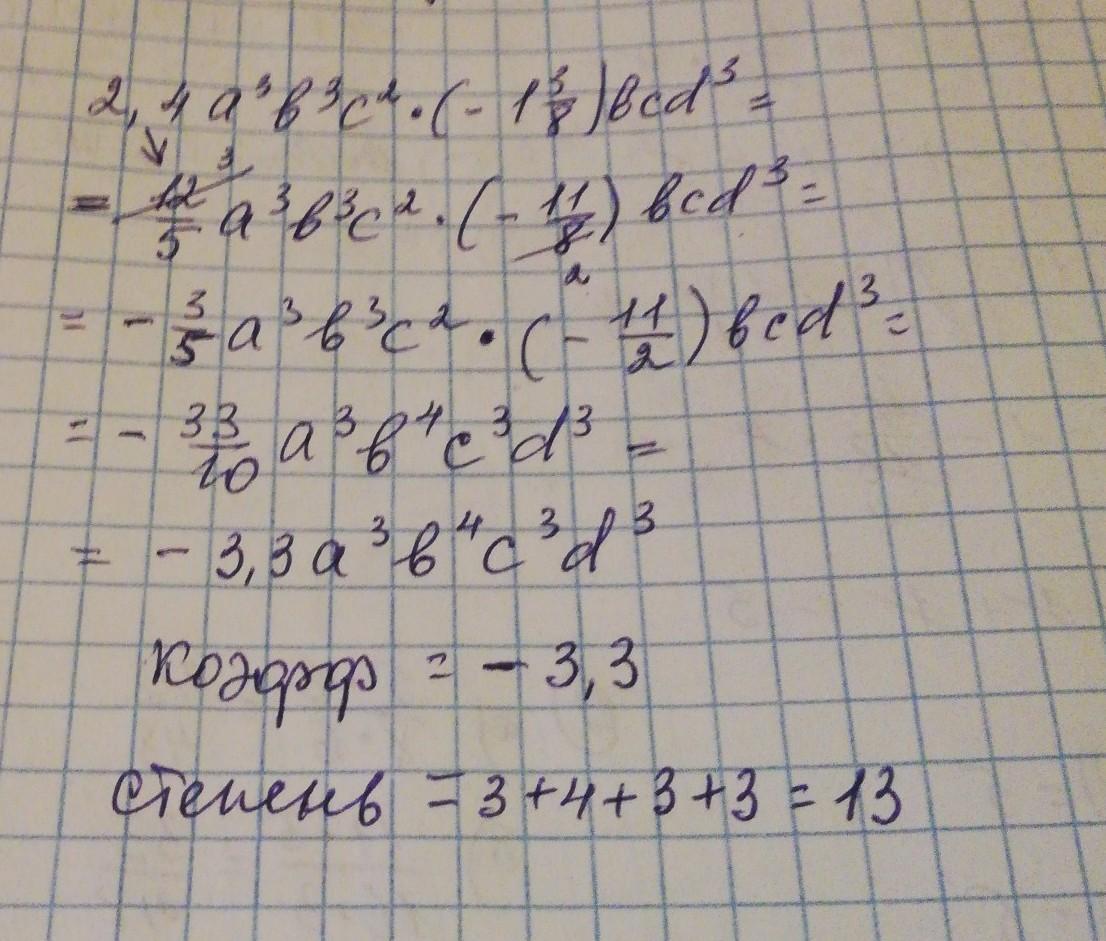 2,4 a³b³c² · (- 1 3/8) bcd³ =
= 12/5 3 a³b³c² · (- 11/8 2) bcd³ =
= - 3/5 a³b³c² · (- 11/2) bcd³ =
= - 33/10 a³b⁴c³d³ =
= - 3,3 a³b⁴c³d³
Коэфф = - 3,3
степень = 3+4+3+3 = 13